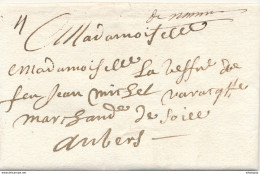 4
de namur
Madamoiselle
Madamoiselle La veffve de
feu Jean Michel
marchande de Soiee
anvers